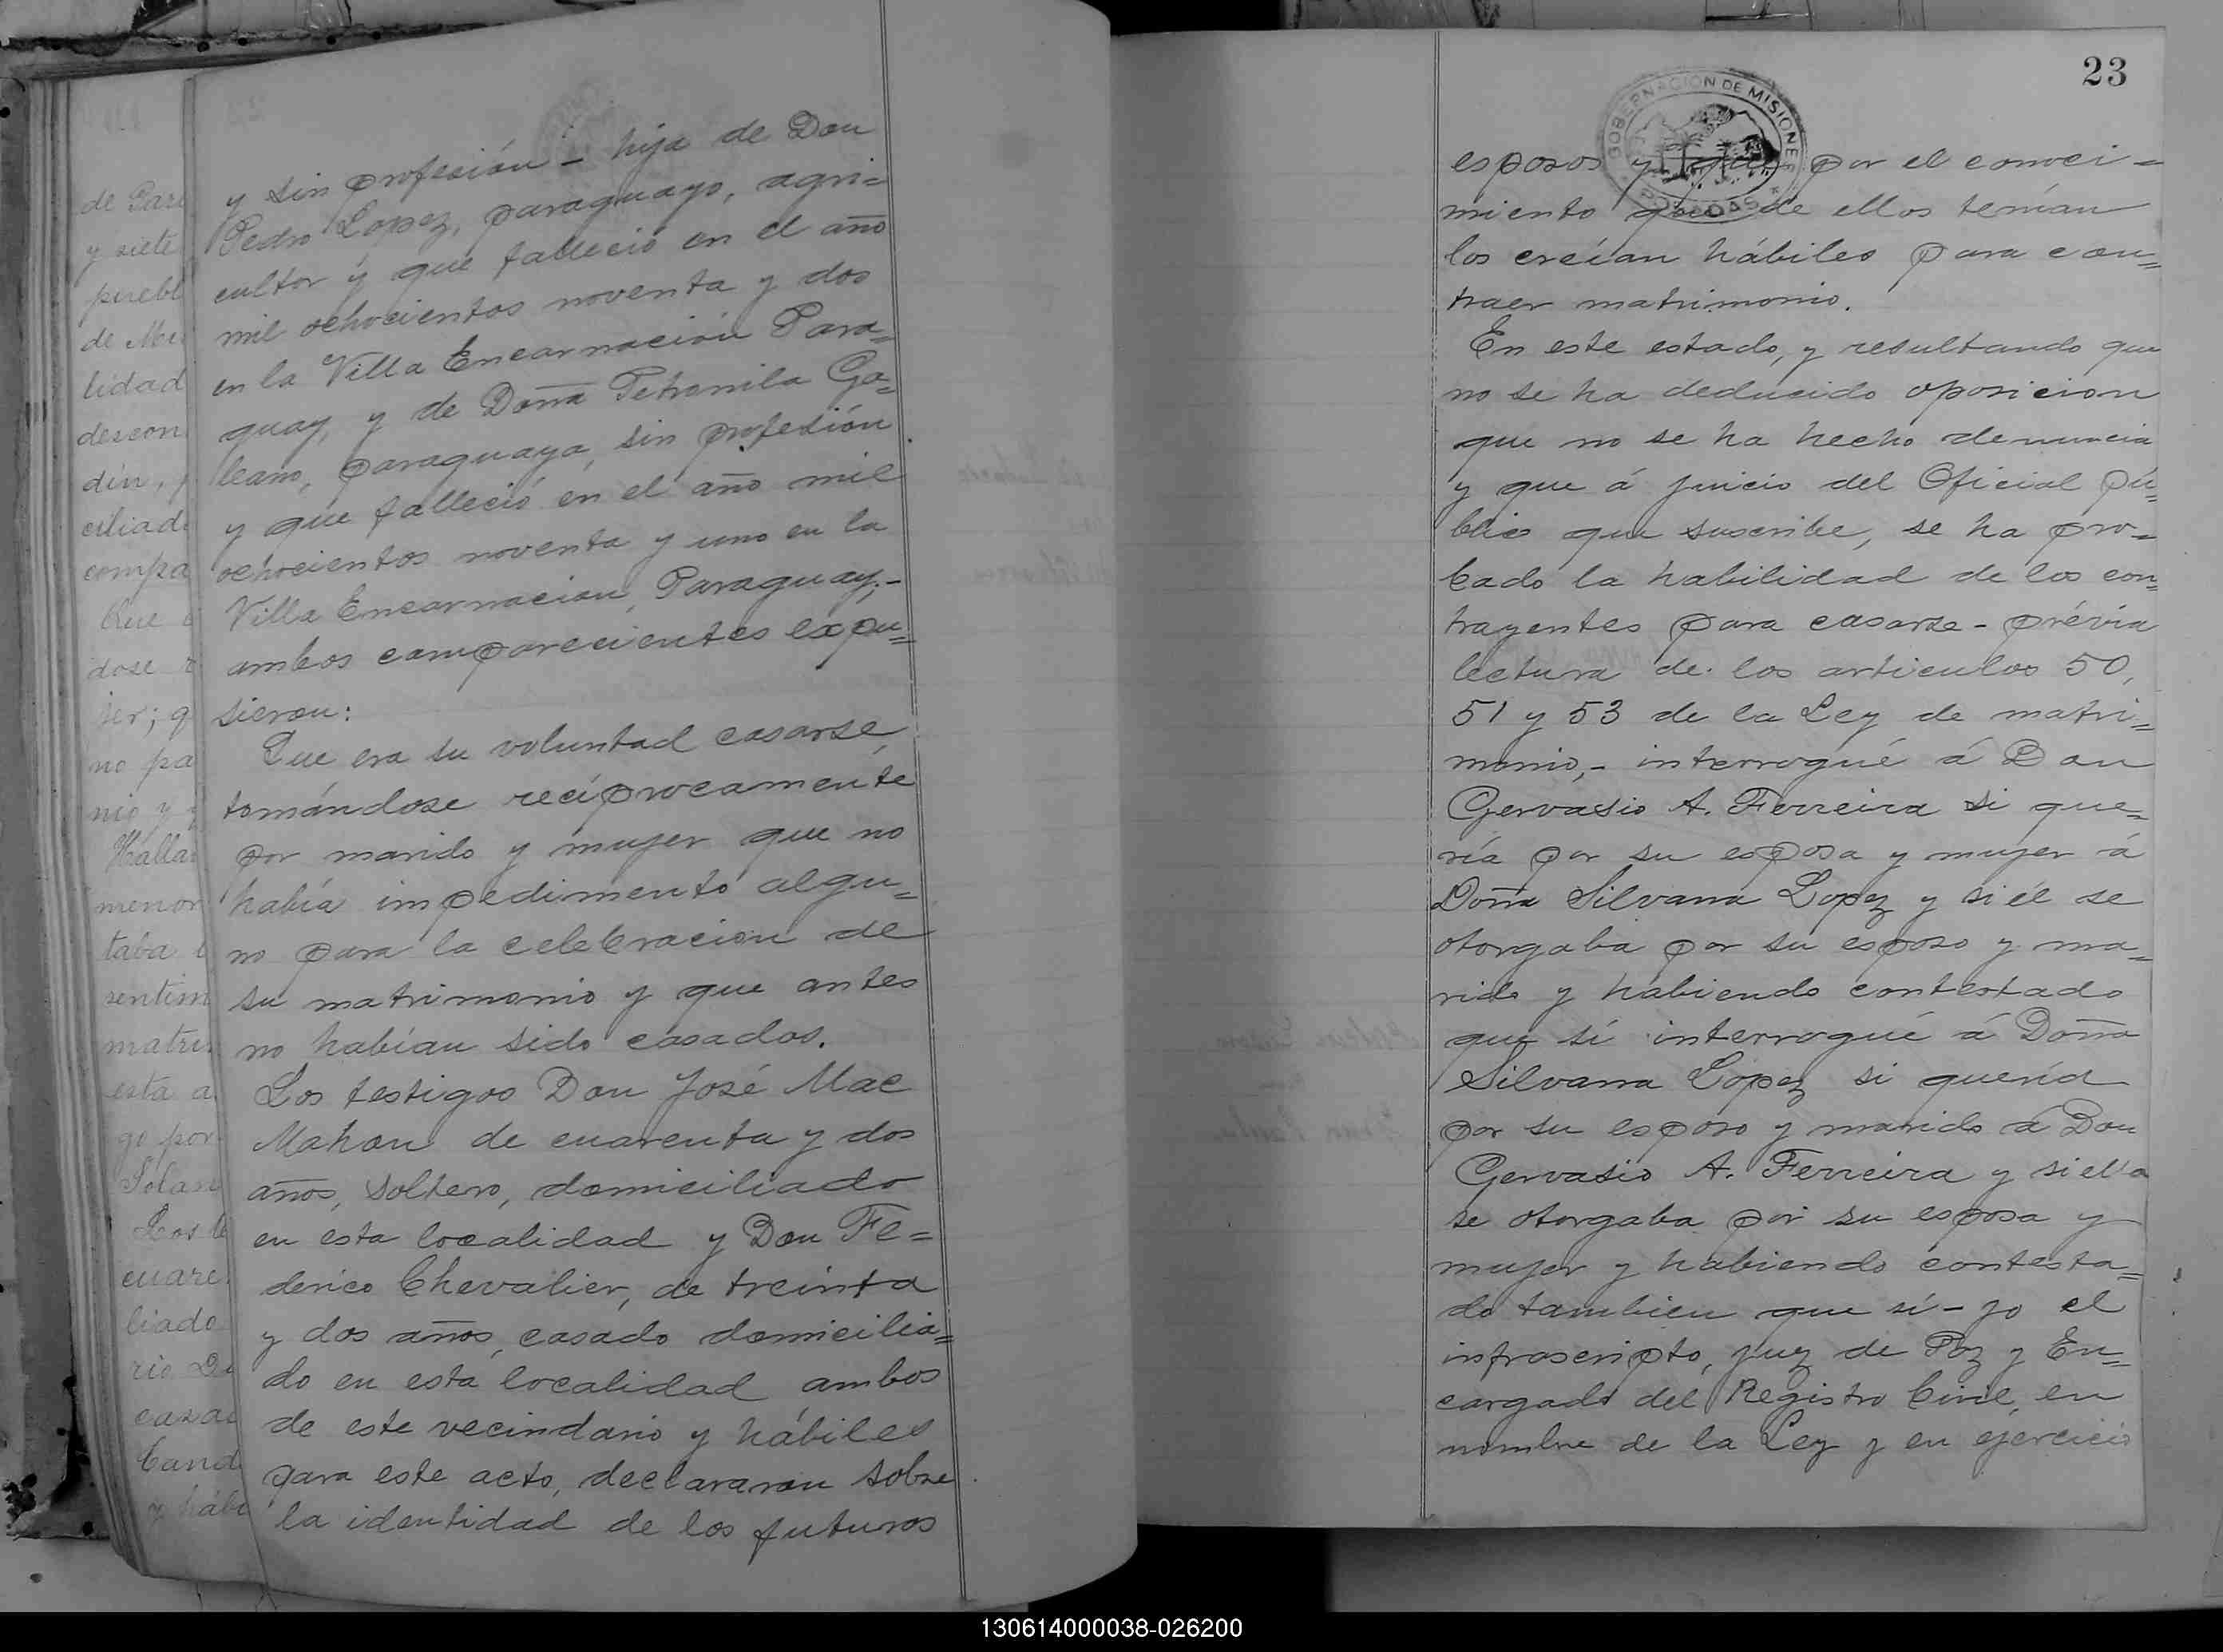 y sin profesión - hija de Don
Pedro Lopez, paraguayo, agri=
cultor y que falleció en el año
mil ochocientos noventa y dos
en la Villa Encarnación Para=
guay, y de Doña Petronila Ga=
leano, paraguaya, sin profesión
y que falleció en el año mil
ochocientos noventa y uno en la
Villa Encarnacion, Paraguay;-
ambos comparecientes expu=
sieron:
Que era su voluntad casarse,
tomándose recíprocamente
por marido y mujer que no
había impedimento algu=
no para la celebracion de
su matrimonio y que antes
no habían sido casados.
Los testigos Don José Mac
Mahon de cuarenta y dos
años, soltero, domiciliado
en esta localidad y Don Fe=
derico Chevalier, de treinta
y dos años, casado domicilia=
do en esta localidad, ambos
de este vecindario y hábiles
para este acto, declararon sobre
la identidad de los futuros
de Para
y siete
puebl
de Mi
lidad
descon
din,
ciliado
compa
Que
dose
ser; q
no pa
nio y
Halla
menor
taba
sentim
matri
esta a
go por
Solan
Los te
cuare
liado
rio
casad
Cand
y hábi
23
GOBERNACION DE MISIONES
POSADAS
esposos y que por el conoci=
miento que de ellos tenían
los creían hábiles para con=
traer matrimonio.
En este estado, y resultando que
no se ha deducido oposicion
que no se ha hecho denuncia
y que á juicio del Oficial pú=
blico que suscribe, se ha pro=
bado la habilidad de los con=
trayentes para casarse - prévia
lectura de los articulos 50,
51 y 53 de la Ley de matri=
monio,- interrogué á Don
Gervasio A. Ferreira si que=
ría por su esposa y mujer á
Doña Silvana Lopez y si él se
otorgaba por su esposo y ma=
rido y habiendo contestado
que sí interrogué á Doña
Silvana Lopez si quería
por su esposo y marido á Don
Gervasio A. Ferreira y si ella
se otorgaba por su esposa y
mujer y habiendo contesta=
do tambien que sí - yo el
infrascripto, Juez de Paz y En=
cargado del Registro Civil, en
nombre de la Ley y en ejercicio
130614000038-026200